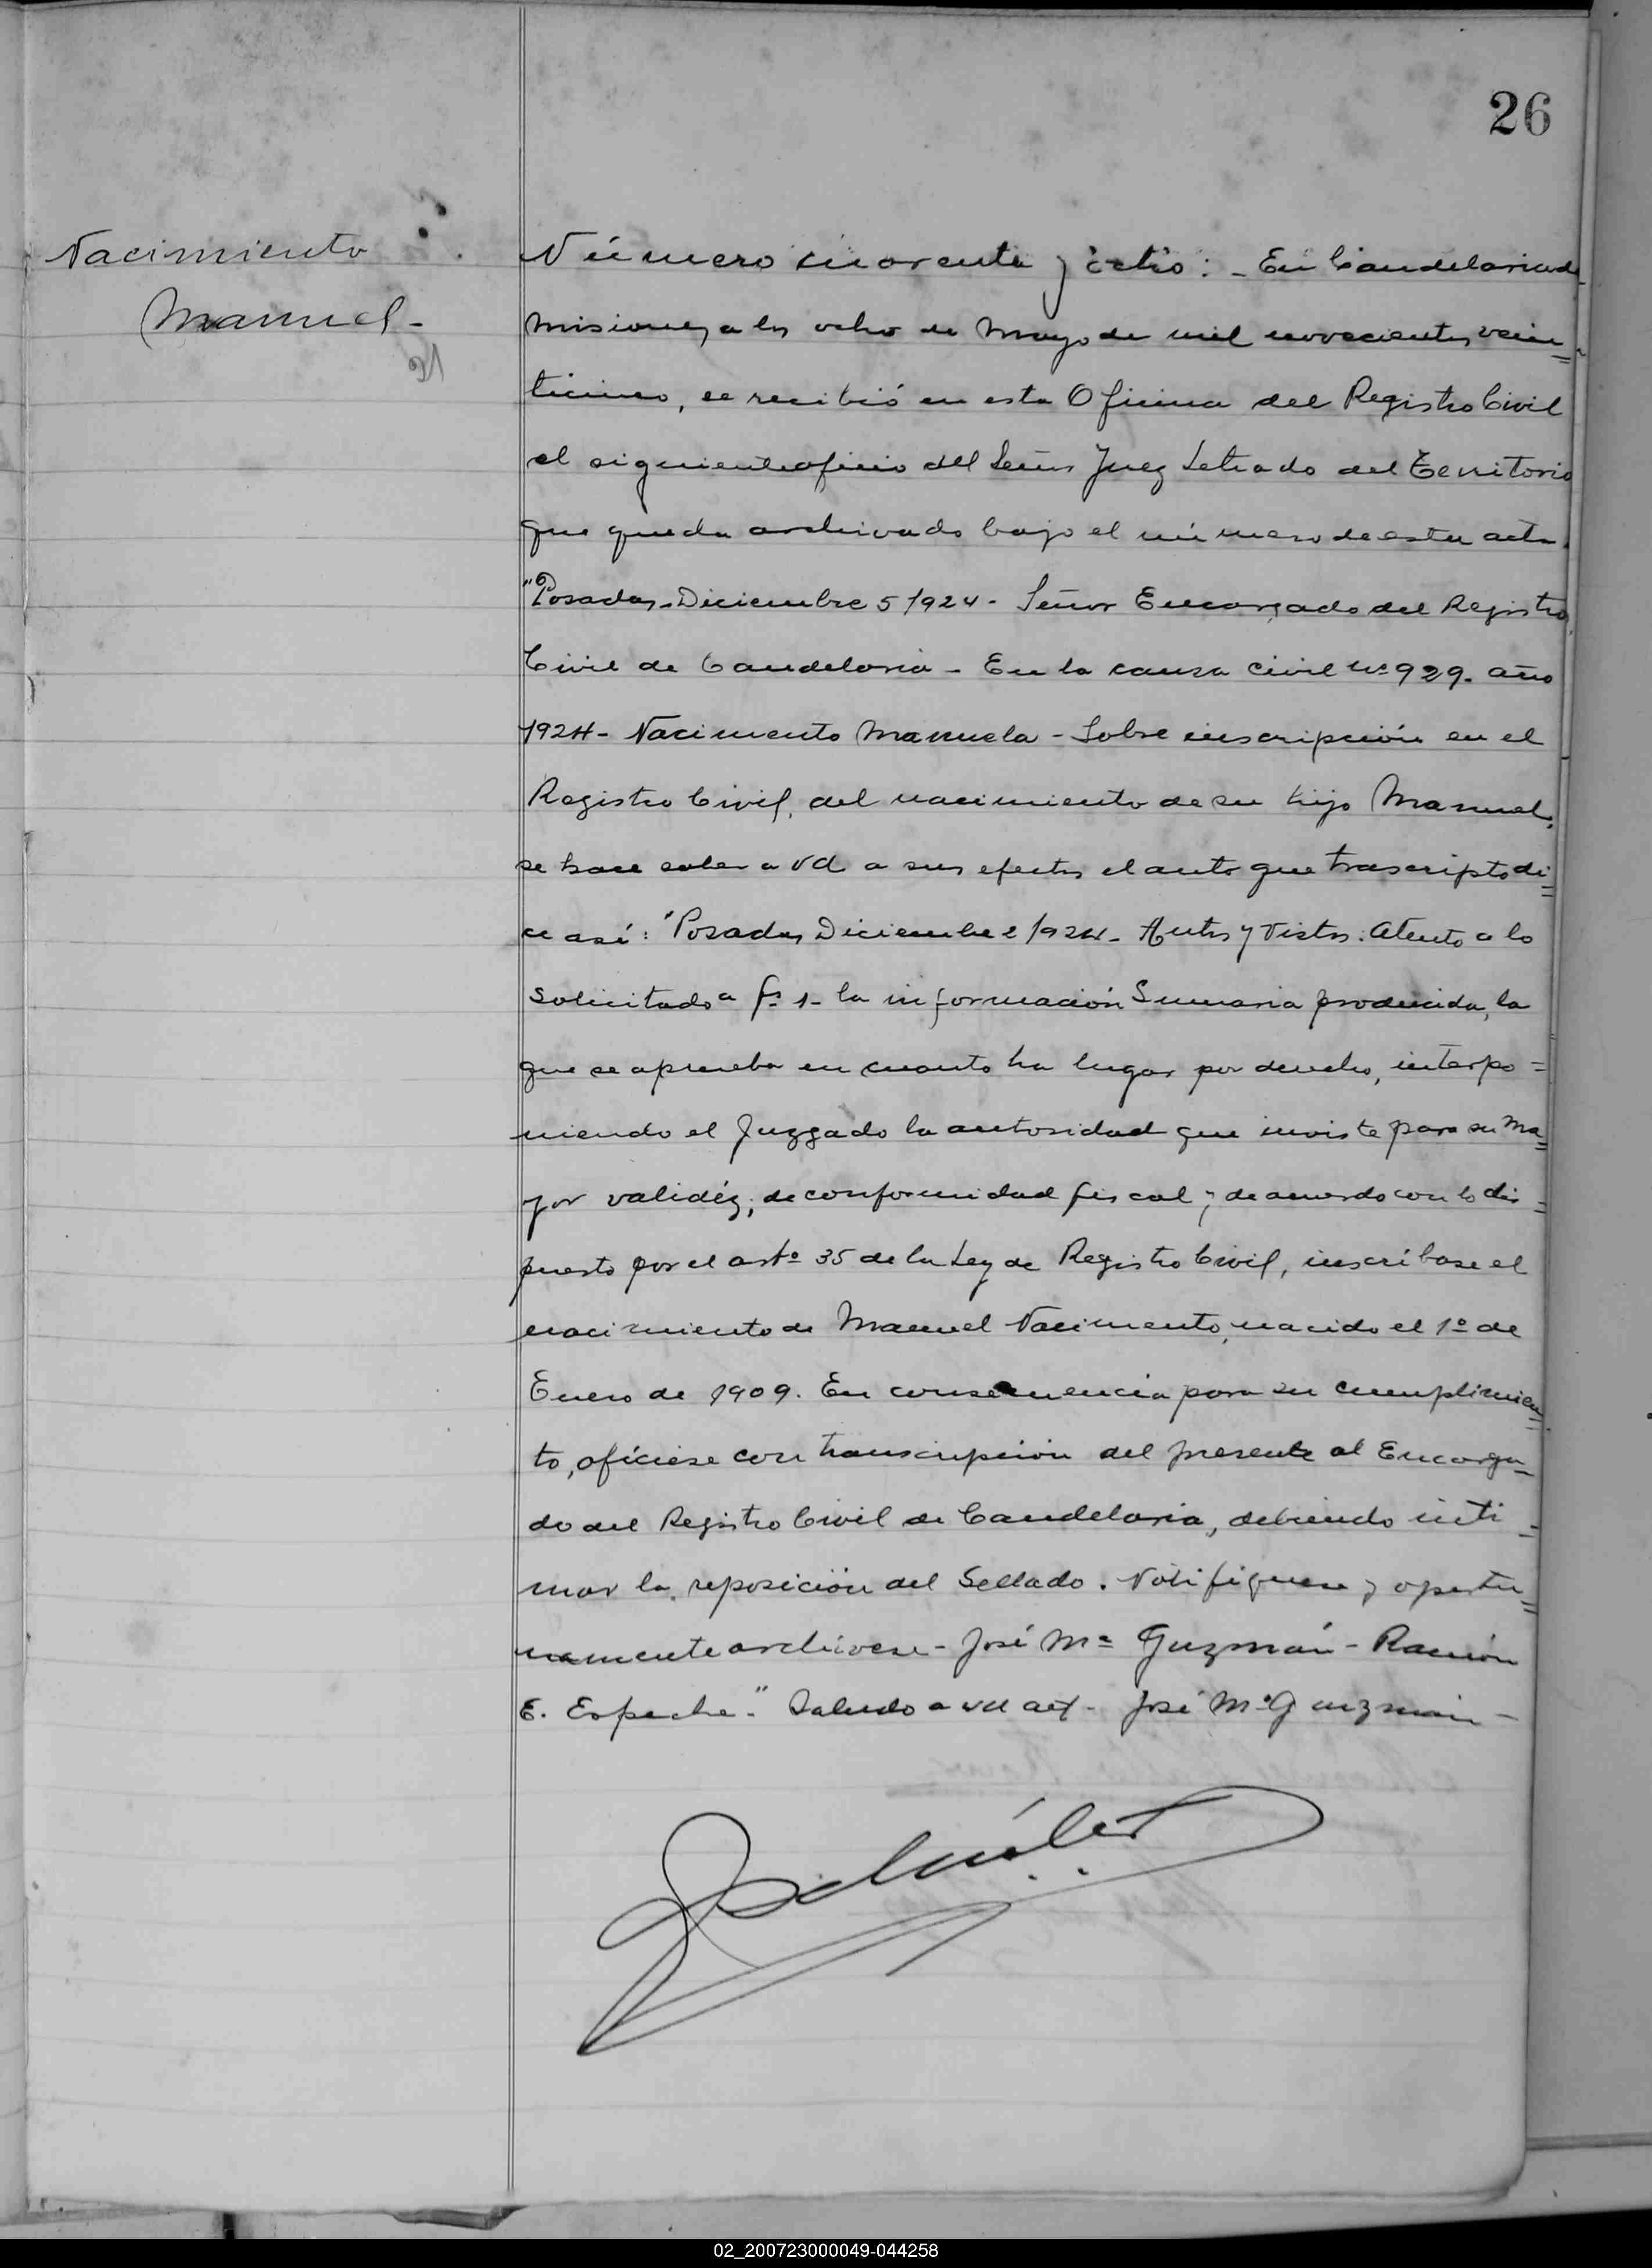 26
Nacimiento
Manuel-
Número cuarenta y ocho: - En Candelaria de
Misiones, a los ocho de Mayo de mil novecientos vein=
ticinco, se recibió en esta Oficina del Registro Civil
el siguiente oficio del Señor Juez Letrado del Territorio
que queda archivado bajo el número de esta acta.
"Posadas, Diciembre 5/924- Señor Encargado del Registro
Civil de Candelaria - En la causa civil nº 929. año
1924- Nacimento Manuela - Sobre inscripción en el
Registro Civil, del nacimiento de su hijo Manuel,
se hace saber a Vd a sus efectos el auto que trascripto di=
ce así: "Posadas, Diciembre 2/924- Autos y Vistos: Atento a lo
solicitado a fs 1- la información Sumaria producida, la
que se aprueba en cuanto ha lugar por derecho, interpo=
niendo el Juzgado la autoridad que inviste para su ma=
yor validéz, de conformidad fiscal y de acuerdo con lo dis=
puesto por el artº 35 de la Ley de Registro Civil, inscríbase el
nacimiento de Manuel Nacimento, nacido el 1º de
Enero de 1909. En consecuencia para su cumplimien=
to, ofíciese con transcripción del presente al Encarga=
do del Registro Civil de Candelaria, debiendo inti=
mar la reposición del Sellado. Notifíquese y oportu=
namente archívese - José Mª Guzmán - Ramón
E. Espeche." Saludo a Vd José Mª Guzmán -
02_200723000049-044258